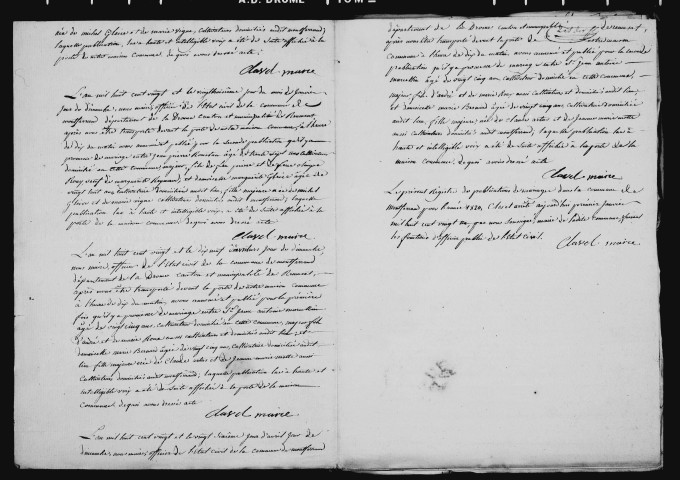 A.D. DROME
née de michel Gleize et de marie vigne, cultivateurs domiciliés audit montferrand;
laquelle publication, lue à haute et intelligible voix a été de suite affichée à la
porte de notre maison commune, de quoi avons dressé acte;
Clavel maire
L'an mil huit cent vingt et le vingttroisième jour du mois de janvier
jour de dimanche, nous maire, officier de l'état civil de la commune de
montferrand département de la Drome canton et municipalité de Remuzat,
après nous être transporté devant la porte de notre maison commune, à l'heure
de dix du matin, avons annoncé et publié pour la seconde publication qu'il y a
promesse de mariage entre jean pierre
domicilié en cette commune majeur, fils de feu pierre et de
et demoiselle marguerite Gleize âgée de
vingt huit ans cultivatrice domiciliée audit lieu, fille majeure née de michel
Gleize et de marie vigne cultivateurs domiciliés audit montferrand; laquelle
publication lue à haute et intelligible voix, a été de suite affichée à la
porte de la maison commune de quoi avons dressé acte
Clavel maire
L'an mil huit cent vingt et le dix neuf d'avril jour de dimanche,
nous maire, officier de l'état civil de la commune de montferrand
département de la Drome canton et municipalité de Remuzat,
après nous être transporté devant la porte de notre maison commune
à l'heure de dix du matin, avons annoncé et publié pour la première
fois qu'il y a promesse de mariage entre Sr jean antoine
âgé de vingt cinq ans, cultivateur domicilié en cette commune, majeur fils
d'andré et de marie Roux aussi cultivateurs et domiciliés audit lieu; et
demoiselle marie Berard âgée de vingt cinq ans, cultivatrice domiciliée audit
lieu fille majeure née de Claude et de jeanne aussi
cultivateurs domiciliés audit montferrand; laquelle publication lue à haute et
intelligible voix a été de suite affichée à la porte de la maison
commune de quoi avons dressé acte
Clavel maire
L'an mil huit cent vingt et le vingt sixième jour d'avril jour de
dimanche, nous maire, officier de l'état civil de la commune de montferrand
département de la Drome canton et municipalité de Remuzat,
après nous être transporté devant la porte de notre maison
commune à l'heure de dix du matin, avons annoncé et publié pour la seconde
publication qu'il y a promesse de mariage entre Sr jean antoine
âgé de vingt cinq ans cultivateur domicilié en cette commune,
majeur fils d'andré et de marie Roux aussi cultivateurs et domiciliés audit lieu;
et demoiselle marie Berard âgée de vingt cinq ans cultivatrice domiciliée
audit lieu, fille majeure née de Claude et de jeanne
aussi cultivateurs domiciliés audit montferrand, laquelle publication lue à
haute et intelligible voix a été de suite affichée à la porte de la
maison commune, de quoi avons dressé acte
Clavel maire
Le présent Registre de publication de mariage dans la commune de
montferrand pour l'année 1820, Clos et arrêté aujourd'hui premier janvier
mil huit cent vingt un, par nous maire de ladite commune, faisant
les fonctions d'officier public de l'état civil.
Clavel maire